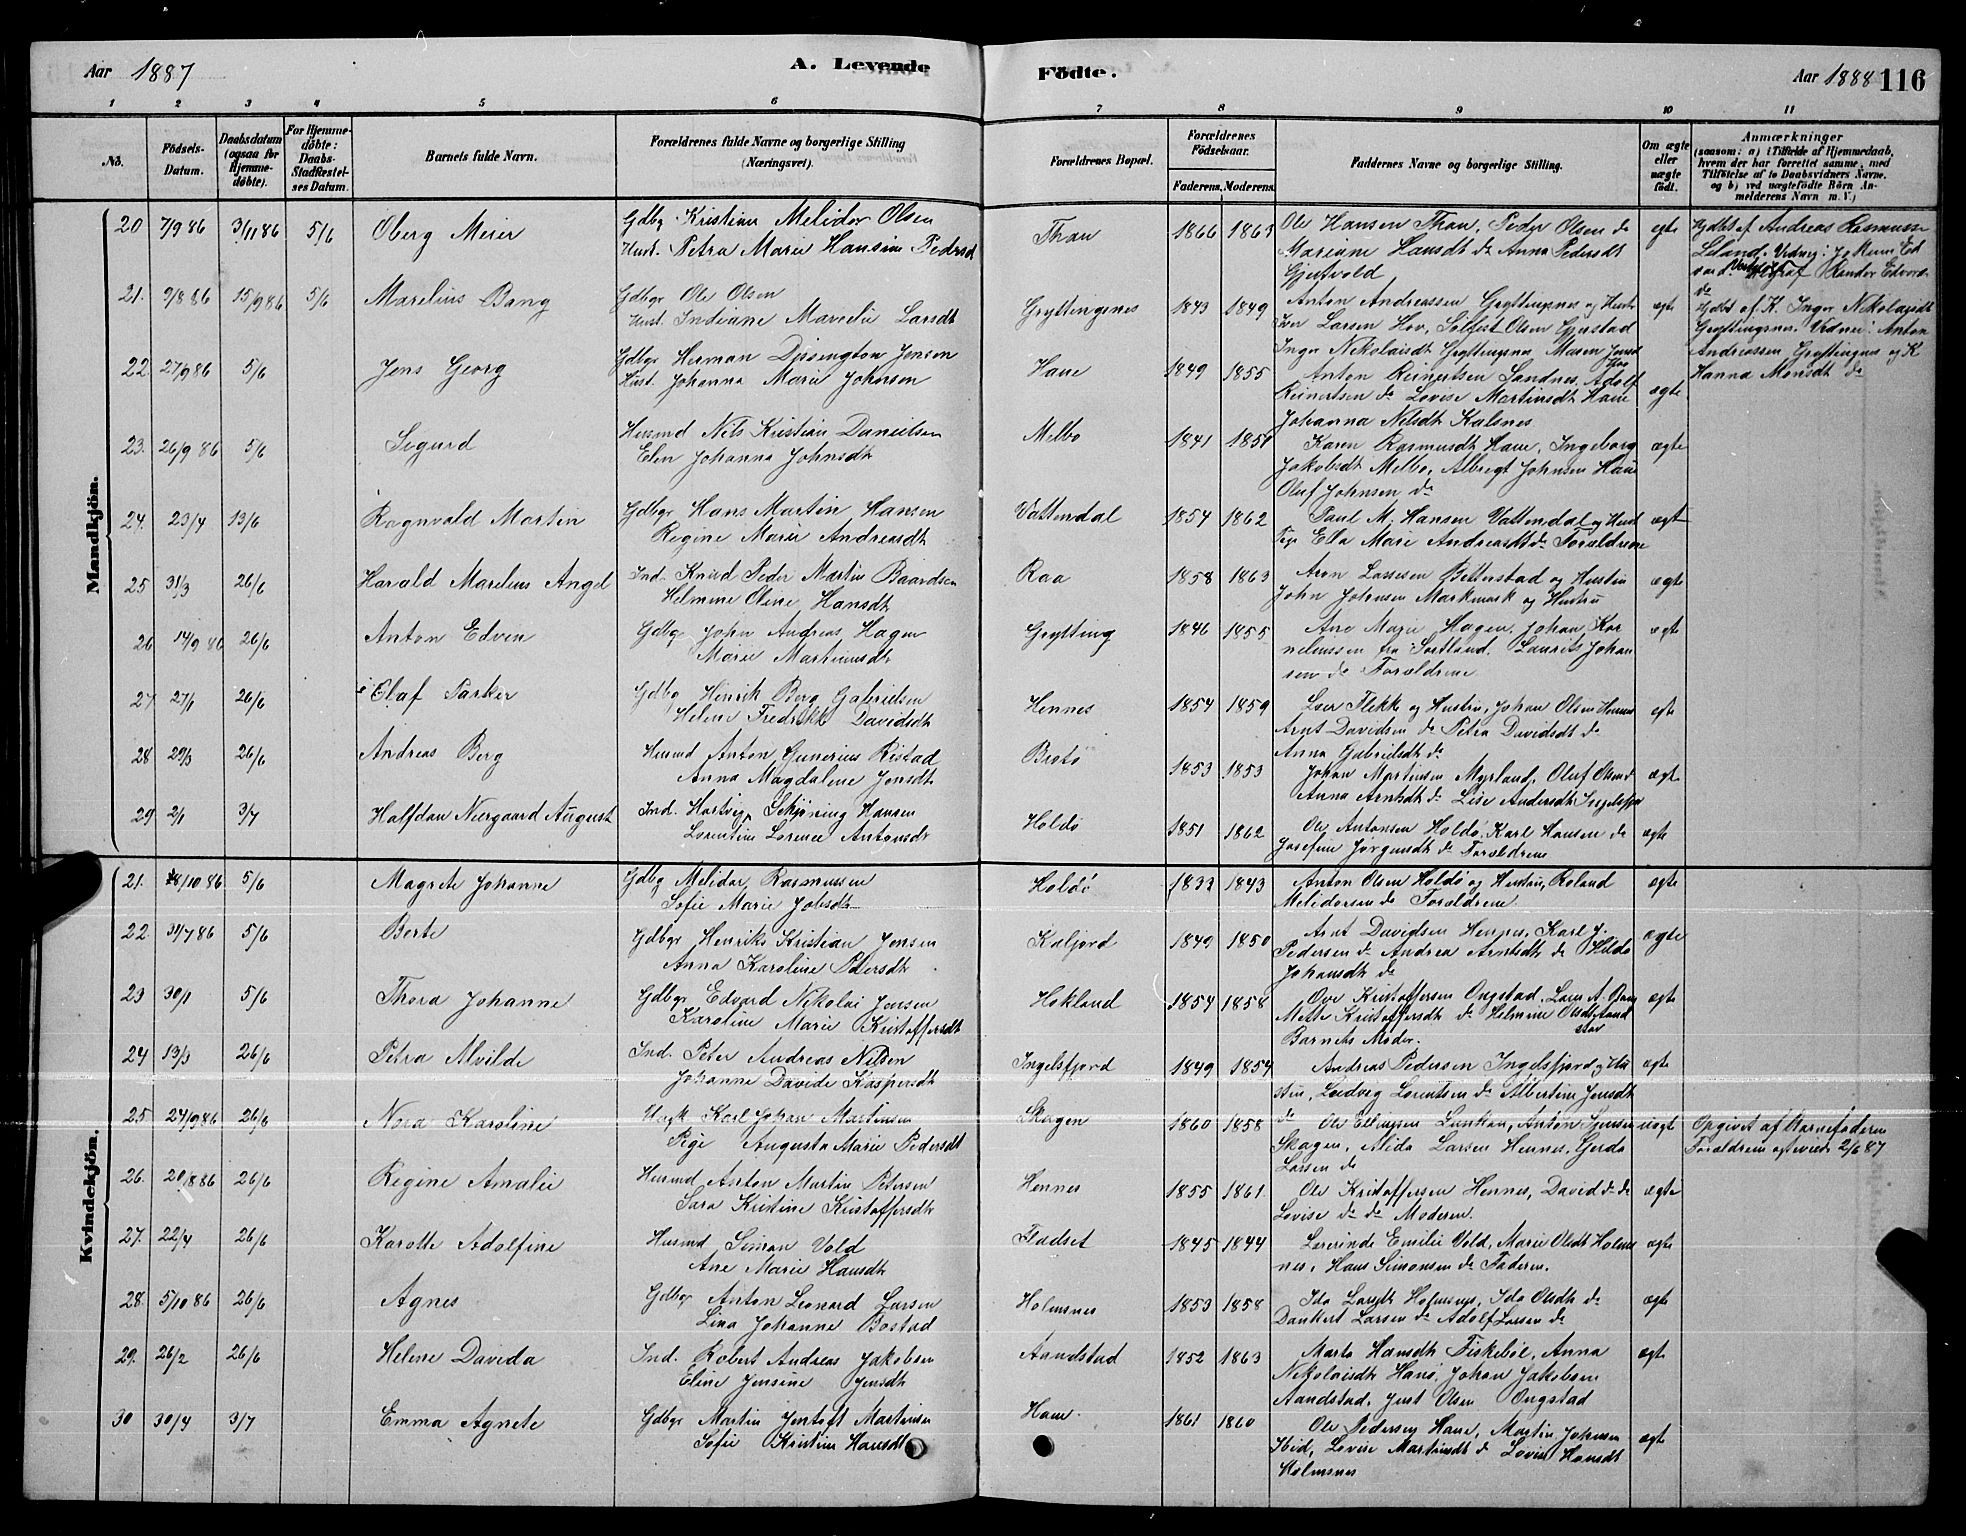 Aar 1887
A. Levende
Födte.
Aar 1888 116
1 2 3 4 5 6 7 8 9 10 11
No.
Födsels-Datum.
Daabsdatum (ogsaa for Hjemme-döbte).
For Hjemme-döbte: Daabs-Stadfæstel-ses Datum.
Barnets fulde Navn.
Forældrenes fulde Navne og borgerlige Stilling (Næringsvei).
Forældrenes Bopæl.
Forældrenes Födselsaar.
Faderens. Moderens.
Faddernes Navne og borgerlige Stilling.
Om ægte eller uægte födt.
Anmærkninger
(saasom: a) i Tilfælde af Hjemmedaab, hvem der har forrettet samme, med Tilföielse af to Daabsvidners Navne. og b) ved uægtefödte Börn An-melderens Navn m. V.)
Mandkjön.
20 7/9 86 3/11 86 5/6 Oberg Meier Gdbg Kristian Melidor Olsen
Hust. Petra Marie Hansine Pedersd
Than 1866 1863 Ole Hansen Than, Peder Olsen do
Mariane Hansdt do Anna Pedersdt
Gjertvold
egte Hjdbt af Andreas Rasmusse
21. 9/8 86 15/9 86 5/6 Marelius Bang Gdbgr Ole Olsen
Hust. Indiane Marelie Larsdt
Gryttingsnes 1843 1849 Anton Andreassen Gryttingsnes og Hust
Iver Larsen Hov, Solfest Olsen Gjerstad
Inger Nikolaisdt Gryttingsnes Maren
ægte Hjdbt af K. Inger Nikolaisdt
Gryttingsnes Vidner: Anton
Andreassen Gryttingnes og K
Hanna Monsdt do
22. 27/9 86 5/6 Jens Georg Gdbgr Herman Dysington Jensen
Hust. Johanna Marie Johnsen
Haue 1849 1855 Anton Reinertsen Sandnes, Adolf
Reinertsen do Lovise Martinsdt Haue
Johanna Nilsdt Kalsnes
ægte
23. 26/9 86 5/6 Sigurd Husmd Nils Kristian Danielsen
Elen Johanna Johnsdt
Melbo 1841 1851 Karen Rasmusdt Haue, Ingeborg
Jakobsdt Melbo, Albregt Johnsen Haue
Oluf Johnsen do
ægte
24. 23/4 13/6 Ragnvald Martin Gdbgr Hans Martin Hansen
Regine Marie Andreasdt
Vattendal 1854 1862 Paul M. Hansen Vattendal og Hust
Pige Ella Marie Andreasdt do Forældrene
ægte
25 31/3 26/6 Harald Marelius Angel Ind. Knud Peder Martin Baardsen
Helmine Oline Hansdt
Raa 1858 1863 Aron Lassesen Bitterstad og Hustru
John Johnsen Markmark og Hustru
ægte
26 14/9 86 26/6 Anton Edvin Gdbgr John Andreas Hagen
Marie Martinusdt
Grytting 1846 1855 Ane Marie Hagen, Johan Kor
neliussen fra Sortland. Laurits Johan
sen do Forældrene
ægte
27 27/1 26/6 Olaf Parker Gdbg Hinrik Berg Gabrielsen
Helene Fredrikke Davidsdt
Hennes 1854 1859 Iver Flekke og Hustru, Johan Olsen Hennes
Arnt Davidsen do Petra Davidsdt do
Anna Gabrielsdt do
egte
28 29/3 26/6 Andreas Berg Husmd Anton Gunerius Ristad
Anna Magdalene Jensdt
Brotø 1853 1853 Johan Martinsen Myrland, Oluf Olsen do
Anna Arntsdt do Lise Andersdt Ingelsfjo
ægte
29 2/1 3/7 Halfdan Neergaard August Ind. Hartvig Schjøning Hansen
Lorentine Lorence Antonsdt
Holdø 1851 1862 Ole Antonsen Holdø, Karl Hansen do
Josefine Jørgensdt do Forældrene
ægte
Kvindekjön.
21. 8/10 86 5/6 Magrete Johanne Gdbg Melidor Rasmussen
Sofie Marie Jobsdt
Holdø 1832 1843 Anton Olsen Holdø og Hustru, Roland
Melidorsen do Forældrene
ægte
22 31/7 86 5/6 Berte Gdbgr Henriks Kristian Jensen
Anna Karoline Pedersdt
Kaljord 1849 1850 Arnt Davidsen Hennes, Karl J.
Pedersen do Andrea Arntsdt do Hilda
Johansdt do
ægte
23 30/1 5/6 Thora Johanne Gdbgr Edvard Nikolai Jensen
Karoline Marie Kristoffersdt
Hokland 1854 1858 Ove Kristoffersen Ongstad, Lars A.
Mette Kristoffersdt do Helmine Olsdt
Barnets Moder.
ægte
24 13/3 26/6 Petra Alvilde Ind. Peter Andreas Nilsen
Johanne Davide Kaspersdt
Ingelsfjord 1849 1854 Andreas Pedersen Ingelsfjord, og Hu
stru, Ludvig Lorentsen do Albertine Jensdt
do
ægte
25 24/9 86 26/6 Nora Karoline Ungk Karl Johan Martinsen
Pige Augusta Marie Pedersdt
Skagen 1860 1858 Ole Ellingsen Lunkan, Anton
Skagen, Alida Larsen Hennes, Gerda
Larsen do
uægte Opgivet af Barnefaderen
Forældrene egteviede 2/6 87
26. 20/8 86 26/6 Regine Amalie Husmd Anton Martin Petersen
Sara Kristine Kristoffersdt
Hennes 1855 1861 Ole Kristoffersen Hennes, David do do
Lovise do do Moderen.
ægte
27. 22/4 26/6 Karotte Adolfine Husmd Simon Vold
Ane Marie Hansdt
Fladset 1845 1844 Lærerinde Emilie Vold, Marie Olsdt Holms
nes, Hans Simonsen do Faderen.
ægte
28. 5/10 86 26/6 Agnes Gdbgr Anton Leonard Larsen
Lina Johanne Bostad
Holmsnes 1853 1858 Ida Larsdt Holmsnes, Ida Olsdt do
Dankert Larsen do Adolf Larsen do
ægte
29. 26/2 26/6 Helene Davida Ind. Robert Andreas Jakobsen
Eline Jensine Jensdt
Aandstad 1852 1863 Marta Hansdt Fiskebøl, Anna
Nikolaisdt Hanø, Johan Jakobsen
Aandstad, Just Olsen Ongstad
ægte
30 30/4 3/7 Emma Agnete Gdbgr Martin Jentoft Martinsen
Sofie Kristine Hansdt
Haue 1861 1860 Ole Pedersen Haue, Martin Johnsen
Ibid, Lovise Martinsdt do Lovise Hansdt
Holmsnes
ægte